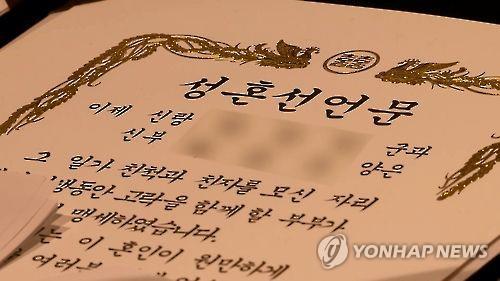 성혼선언문
이제 신랑 군과
신부 양은
그 일가 친척과 친지를 모신 자리
동안 고락을 함께 할 부부가
맹세하였습니다.
는 이 혼인이 원만하게
여러분
YONHAP NEWS